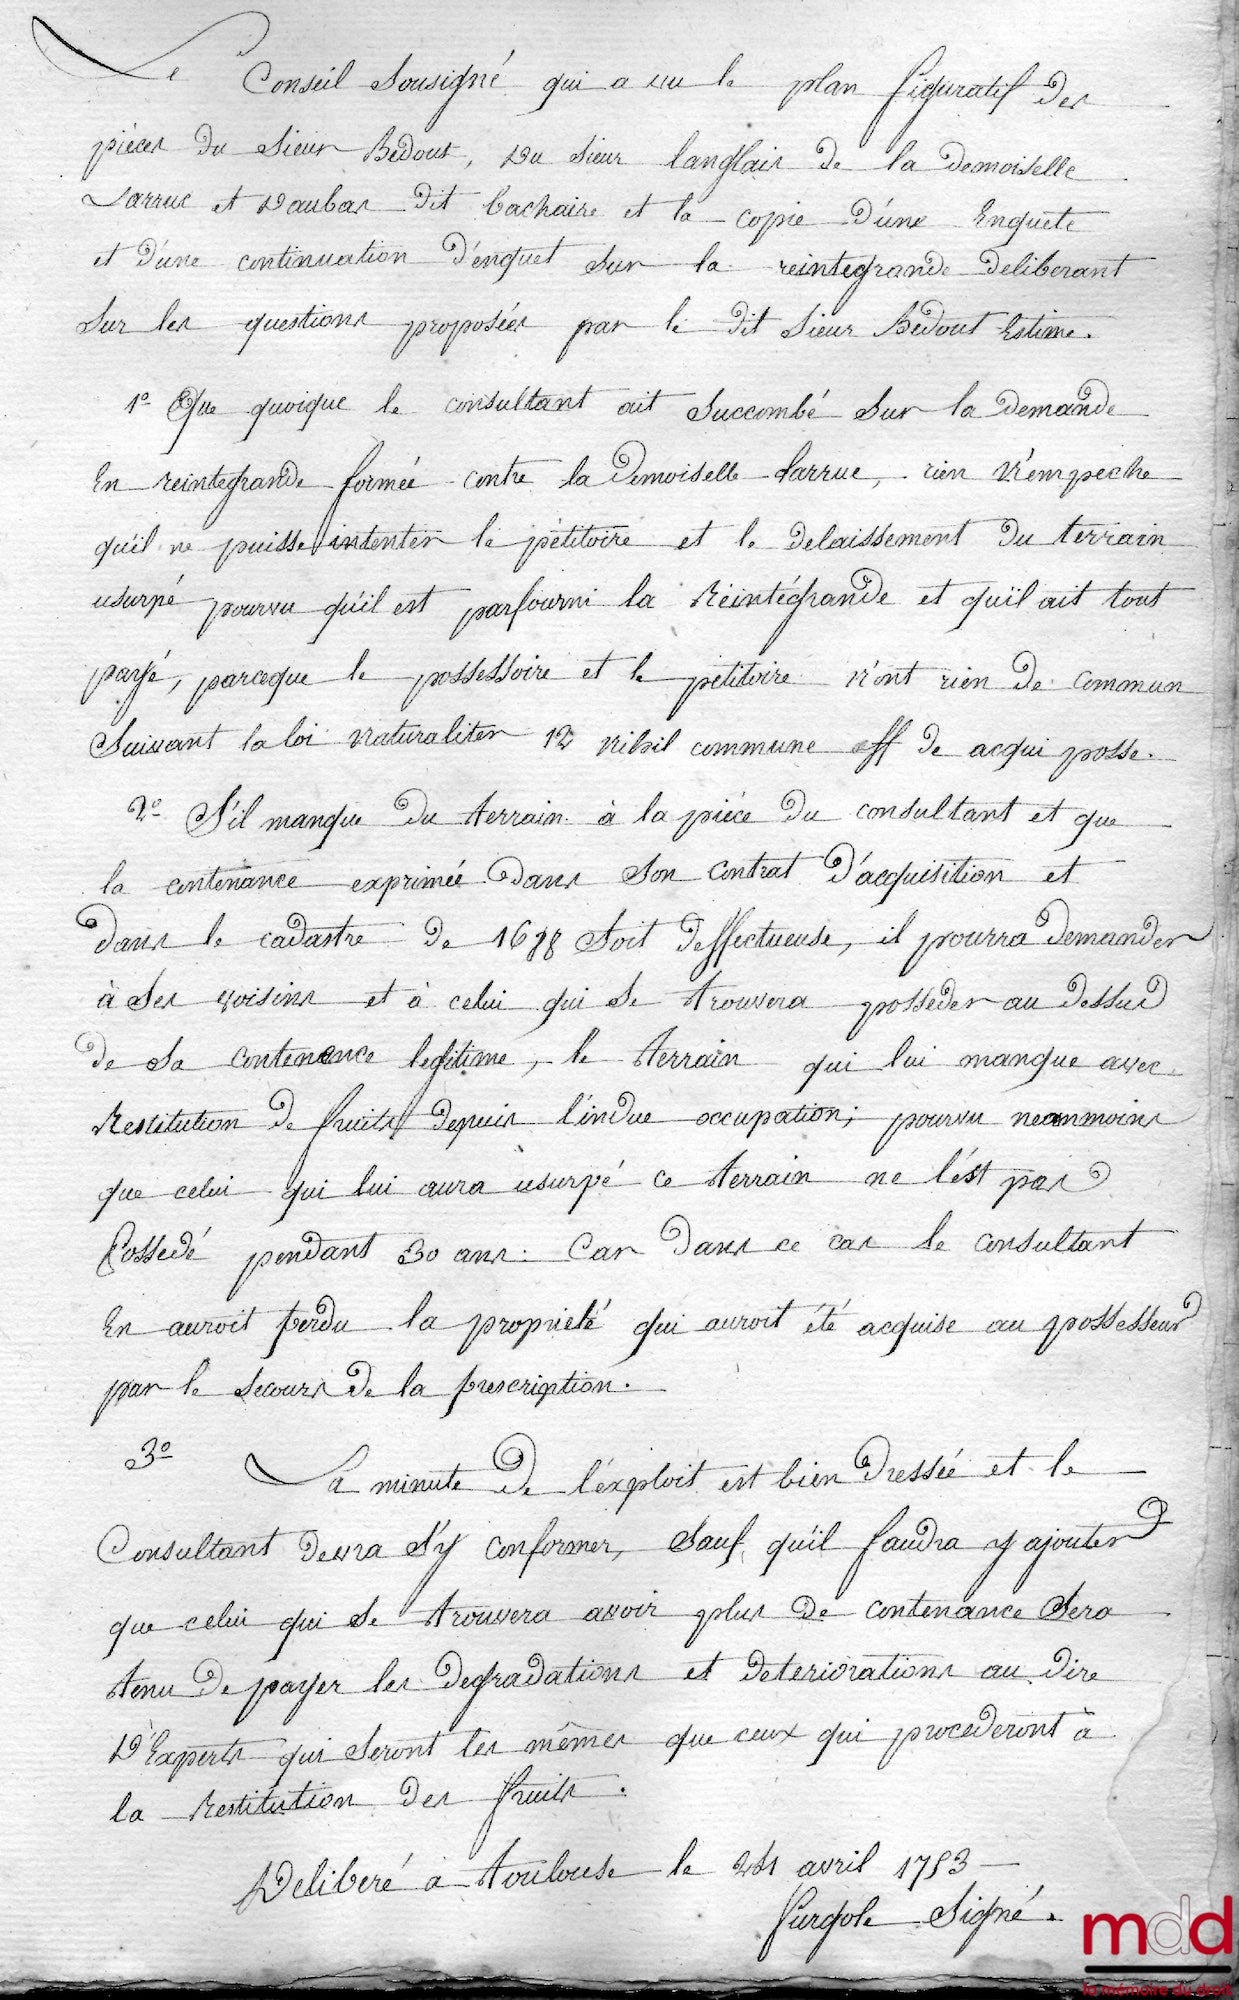 Le Conseil Sousigné qui a vu le plan figuratif des
piéces du Sieur Bedout, du Sieur langlais de la Demoiselle
Larruc et Daubas dit Cachaire et la copie d'une Enquete
et d'une continuation d'enquet sur la reintegrande deliberant
sur les questions proposées par le dit Sieur Bedout Estime.
1º Que quoique le consultant ait Succombé sur la demande
En reintegrande formée contre la Demoiselle Larruc, rien n'empeche
qu'il ne puisse intenter le pétitoire et le delaissement du terrain
usurpé pourvu qu'il est parfourni la Réintégrande et qu'il ait tout
payé, parceque le possessoire et le petitoire n'ont rien de commun
Suivant la loi naturaliter 12 nihil commune ff de acqui posse.
2º S'il manque du terrain à la piéce du consultant et que
la contenance exprimée dans Son Contrat d'acquisition et
dans le cadastre de 1688 Soit deffectueuse, il pourra demander
à Ses voisins et à celui qui se trouvera posseder au dessus
de sa contenance legitime, le terrain qui lui manque avec
Restitution de fruits depuis l'indue occupation; pourvu neanmoins
que celui qui lui aura usurpé ce terrain ne l'ést pas
Possedé pendant 30 ans. Car dans ce cas le consultant
En auroit perdu la proprieté qui auroit été acquise au possesseur
par le secours de la prescription.
3º La minute de l'éxploit est bien dressée et le
Consultant devra s'y conformer, Sauf qu'il faudra y ajouter
que celui qui se trouvera avoir plus de contenance Sera
tenu de payer les degradations et deteriorations au dire
D'Experts qui seront les mêmes que ceux qui procederont à
la Restitution des fruits.
Deliberé à toulouse le 24 avril 1753
Furgole Signé.
mdd
la mémoire du droit